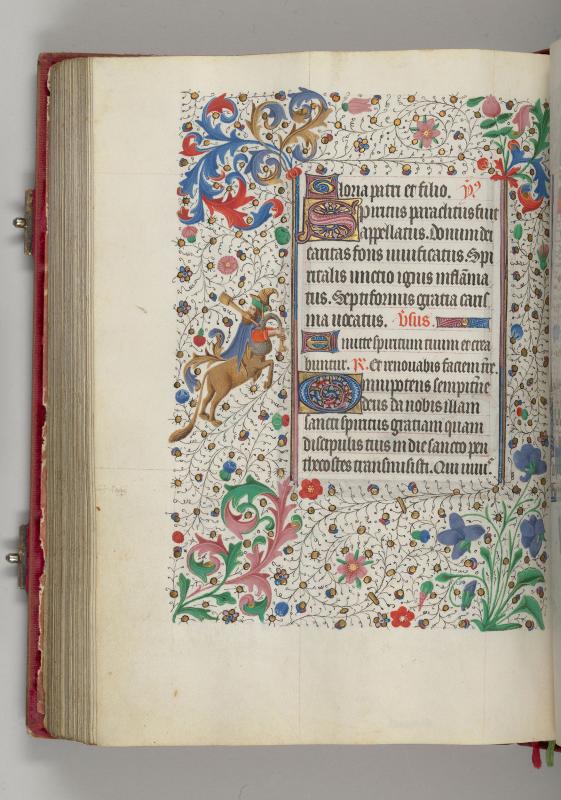 Gloria patri et filio. ps
Spiritus paraclitus fuit
appellatus. Donum dei
caritas fons uiuificatus. Spi
ritalis unctio ignis inflāma
tus. Septiformis gratia caris
ma uocatus. v̄sus.
Emitte spiritum tuum et crea
buntur. R. Et renouabis faciem t̄re.
Omnipotens sempit̄ne
deus da nobis illam
sancti spiritus gratiam quam
discipulis tuis in die sancto pen
thecostes transmisisti. Qui uiuis